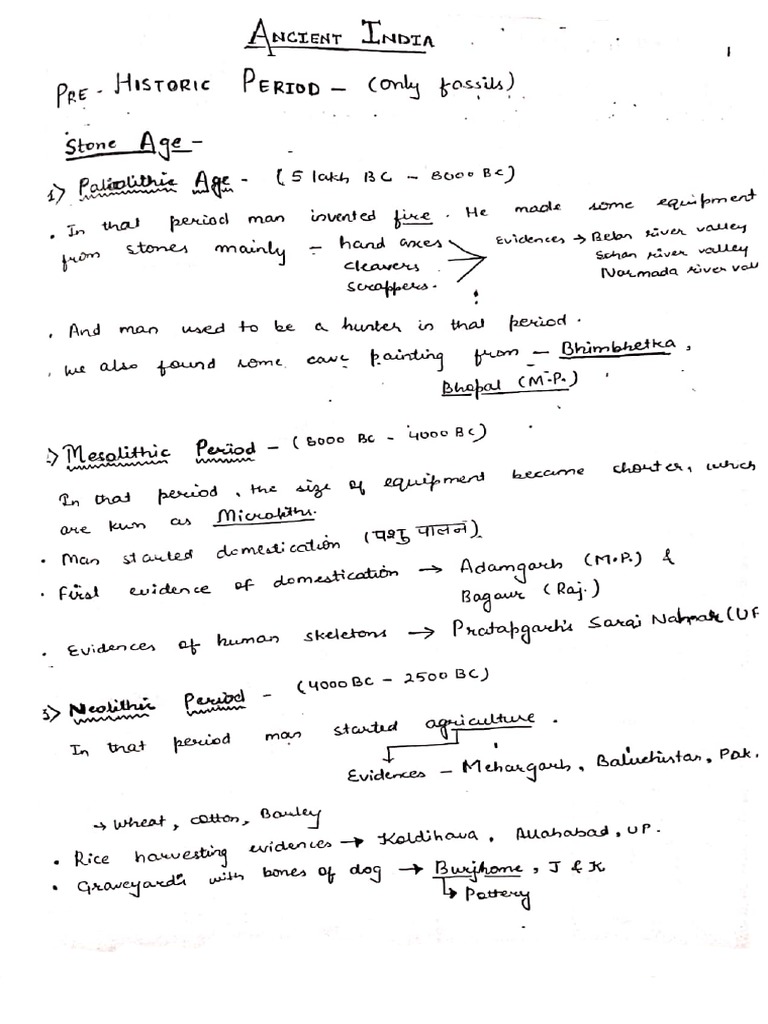 ANCIENT INDIA
1
PRE-HISTORIC PERIOD - (only fossils)
Stone Age -
1) Paleolithic Age - (5 lakh BC - 8000 BC)
• In that period man invented fire. He made some equipment
from stones mainly - hand axes
cleavers
scrappers.
Evidences → Belan river valley
Sohan river valley
Narmada river vall
• And man used to be a hunter in that period.
• We also found some cave painting from - Bhimbhetka,
Bhopal (M.P.)
Mesolithic Period - (8000 BC - 4000 BC)
In that period, the size of equipment became shorter, which
are kwn as Microliths.
• Man started domestication (पशु पालन)
• First evidence of domestication → Adamgarh (M.P.) &
Bagaur (Raj.)
• Evidences of human skeletons → Pratapgarh's Sarai Nahar (UP
3) Neolithic Period - (4000 BC - 2500 BC)
In that period man started agriculture.
Evidences - Mehargarh, Baluchistan, Pak.
→ Wheat, cotton, Barley
• Rice harvesting evidences → Koldihava, Allahabad, UP.
• Graveyards with bones of dog → Burjhome, J & K
↳ Pottery